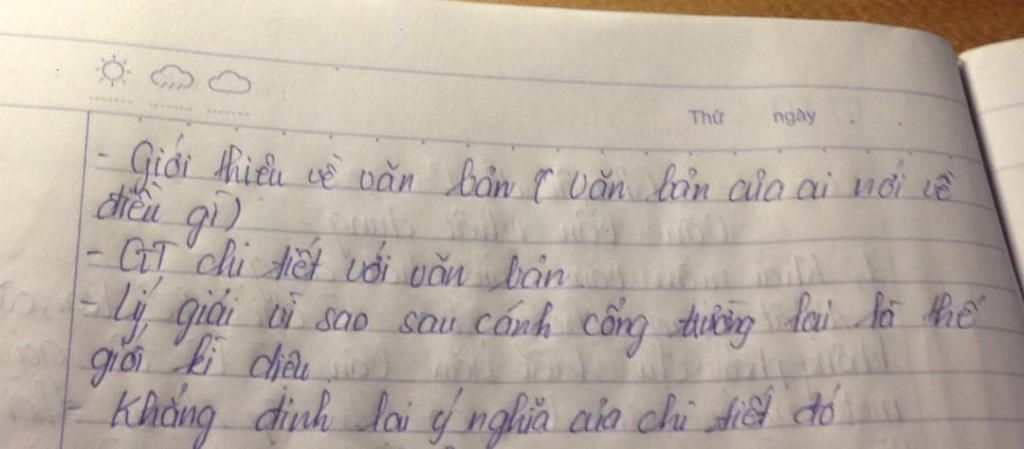 Thứ ngày
- Giới thiệu về văn bản ( Văn bản của ai nói về
điều gì)
- GT chi tiết với văn bản.
- Lý giải vì sao sau cánh cổng trường lại là thế
giới kì diệu
- Khẳng định lại ý nghĩa của chi tiết đó